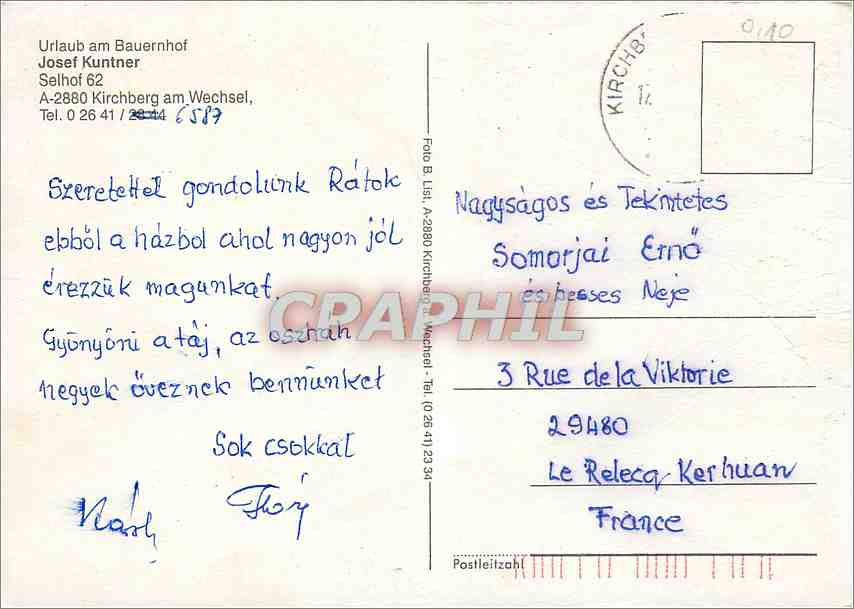 Urlaub am Bauernhof
Josef Kuntner
Selhof 62
A-2880 Kirchberg am Wechsel,
Tel. 0 26 41 / 28 44 6587
Szeretettel gondolunk Rátok
ebből a házbol ahol nagyon jól
érezzük magunkat.
Gyönyörü a táj, az osztrák
hegyek öveznek bennünket
Sok csokkal
Foto B. List, A-2880 Kirchberg a. Wechsel - Tel. (0 26 41) 23 34
KIRCHB
0,10
Nagyságos és Tekintetes
Somorjai Ernő
és besses Neje
3 Rue de la Viktorie
29480
Le Relecq Kerhuan
France
Postleitzahl
CRAPHIL